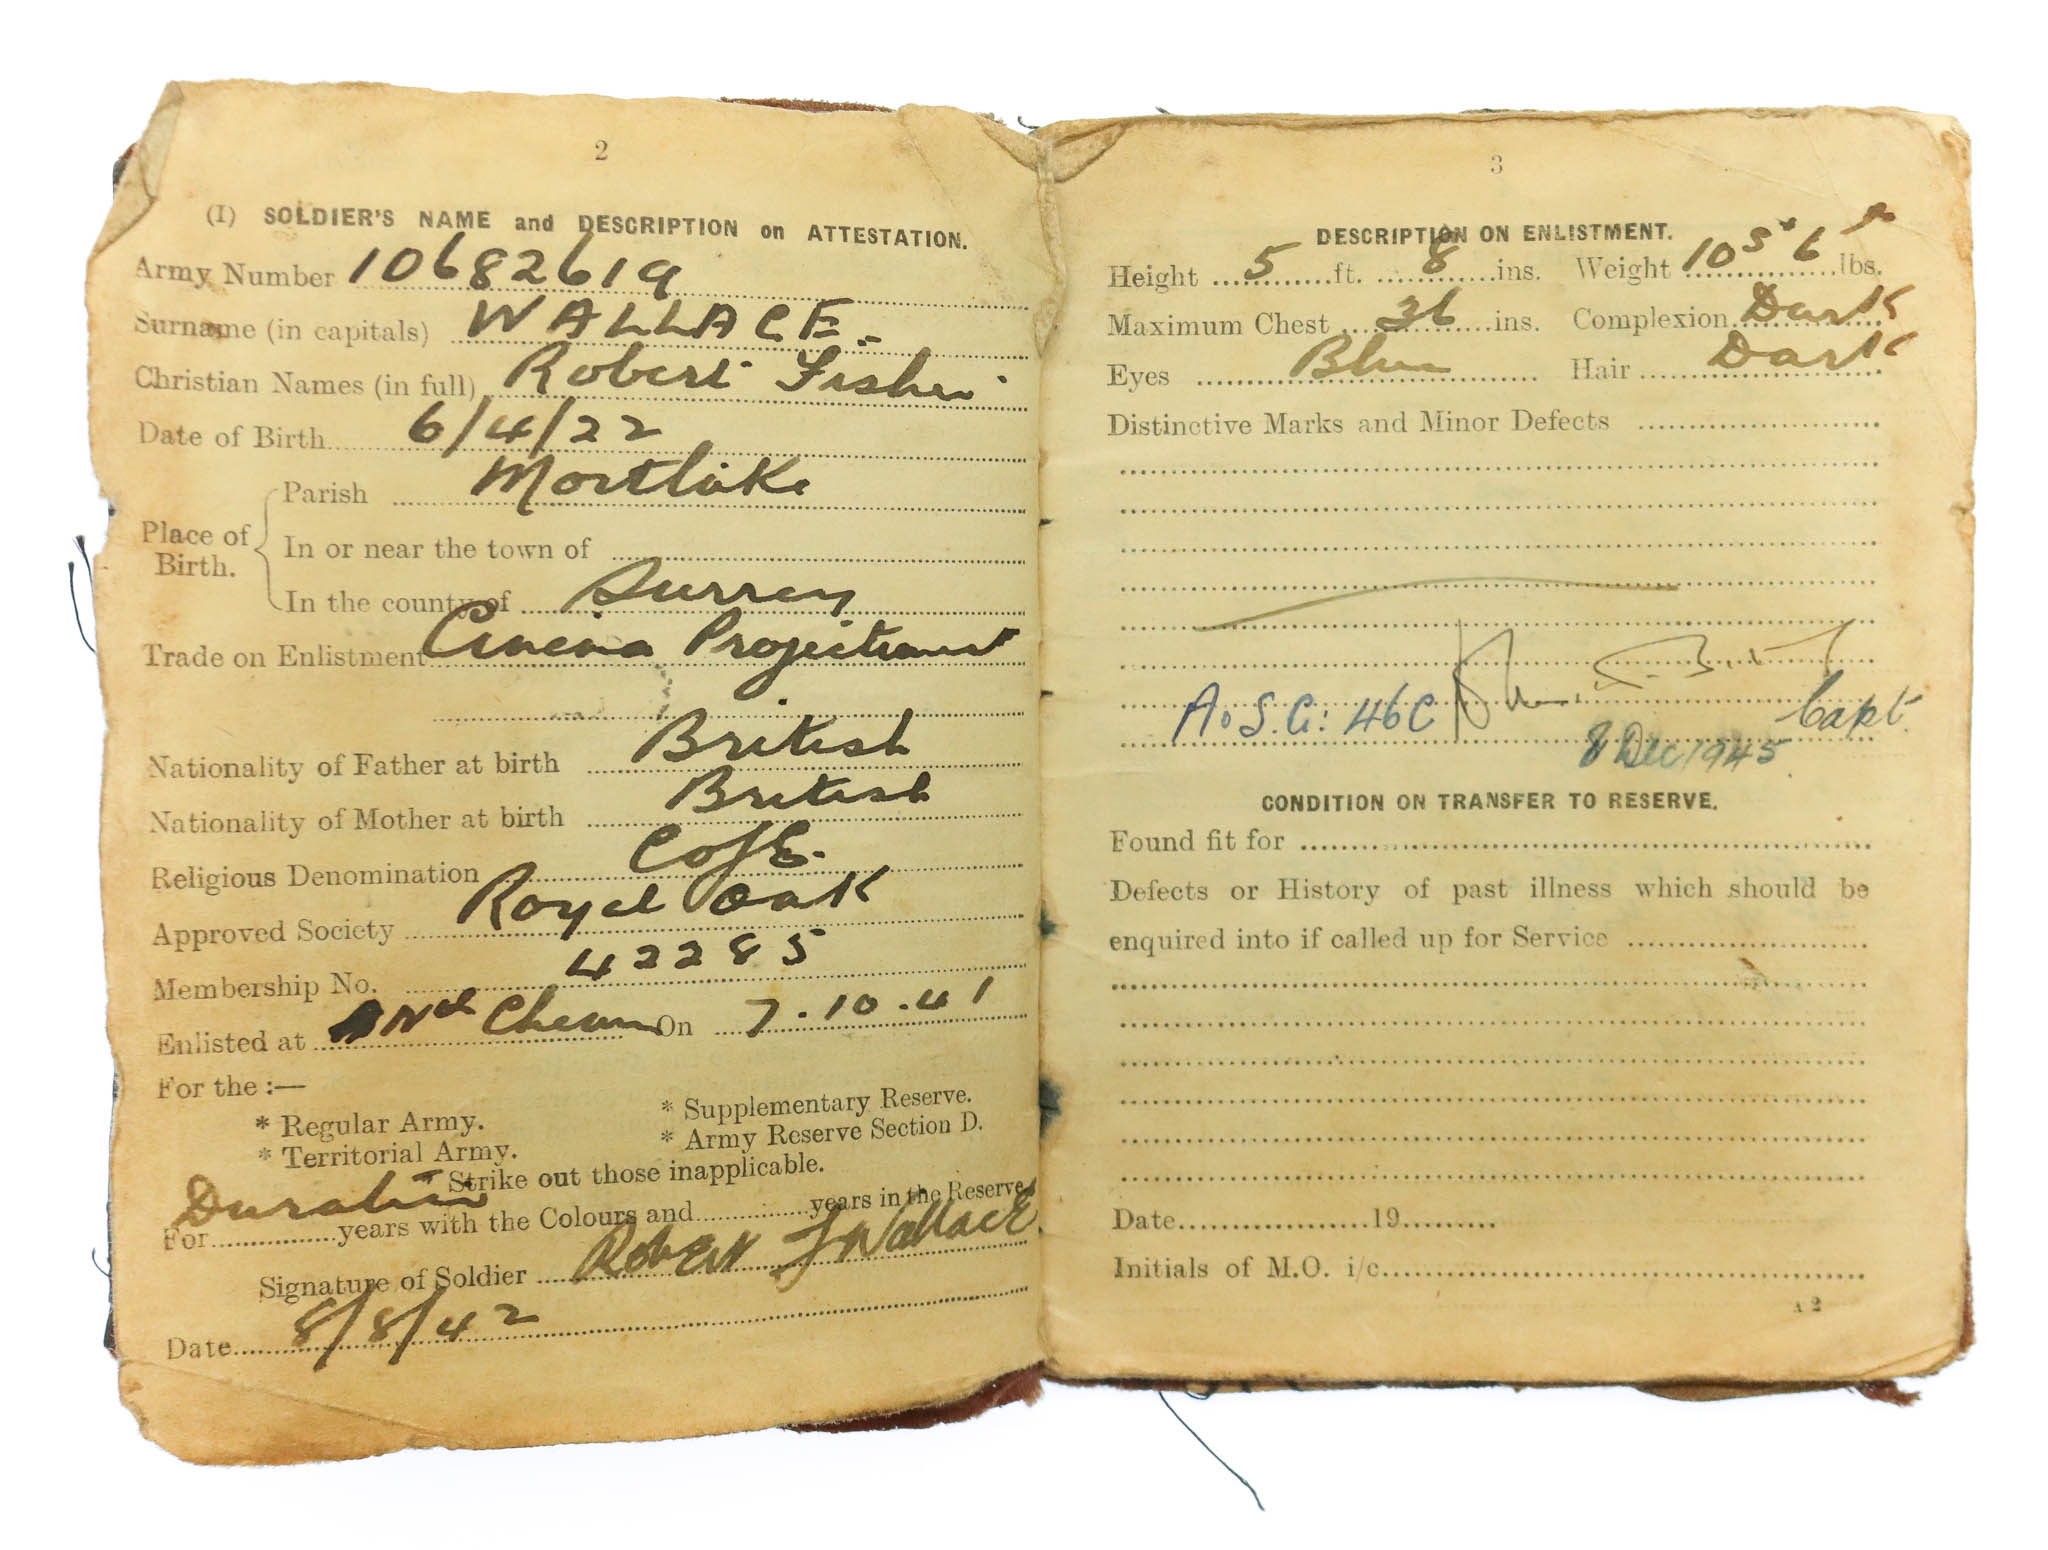 2
(I) SOLDIER'S NAME and DESCRIPTION on ATTESTATION.
Army Number 10682619
Surname (in capitals) WALLACE.
Christian Names (in full) Robert Fisher
Date of Birth 6/4/22
Place of Birth.
Parish Mortlake
In or near the town of
In the county of Surrey
Trade on Enlistment Cinema Projectionist
Nationality of Father at birth British
Nationality of Mother at birth British
Religious Denomination CofE.
Approved Society Royal Oak
Membership No. 42285
Enlisted at Nth Cheam On 7.10.41
For the :—
* Regular Army. * Supplementary Reserve.
* Territorial Army. * Army Reserve Section D.
Strike out those inapplicable.
Duration
For years with the Colours and years in the Reserve.
Signature of Soldier Robert F Wallace
Date 8/8/42
3
DESCRIPTION ON ENLISTMENT.
Height 5 ft. 8 ins. Weight 10 s 6 lbs.
Maximum Chest 36 ins. Complexion Dark
Eyes Blue Hair Dark
Distinctive Marks and Minor Defects
A.S.G: 46C Capt.
8 Dec 1945
CONDITION ON TRANSFER TO RESERVE.
Found fit for
Defects or History of past illness which should be
enquired into if called up for Service
Date 19
Initials of M.O. i/c
A 2